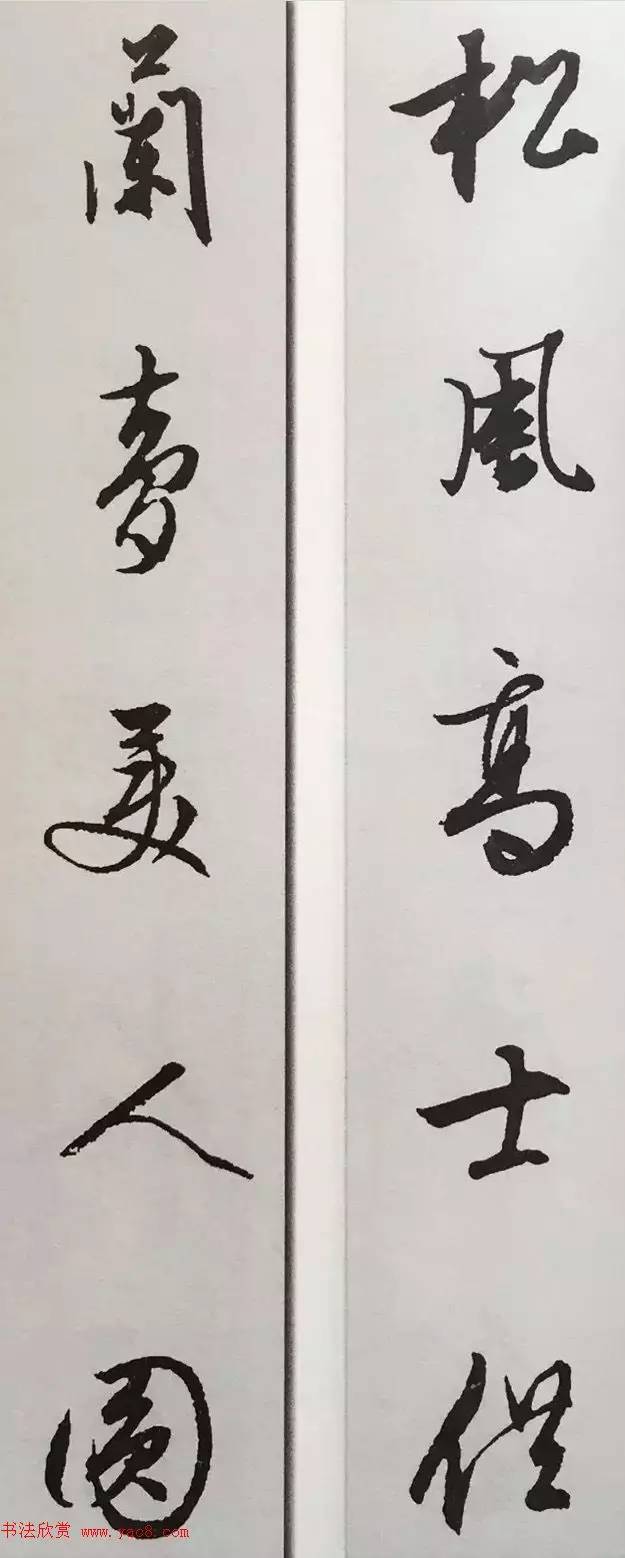 松風高士供
蘭夢美人圓
书法欣赏 www.yac8.com